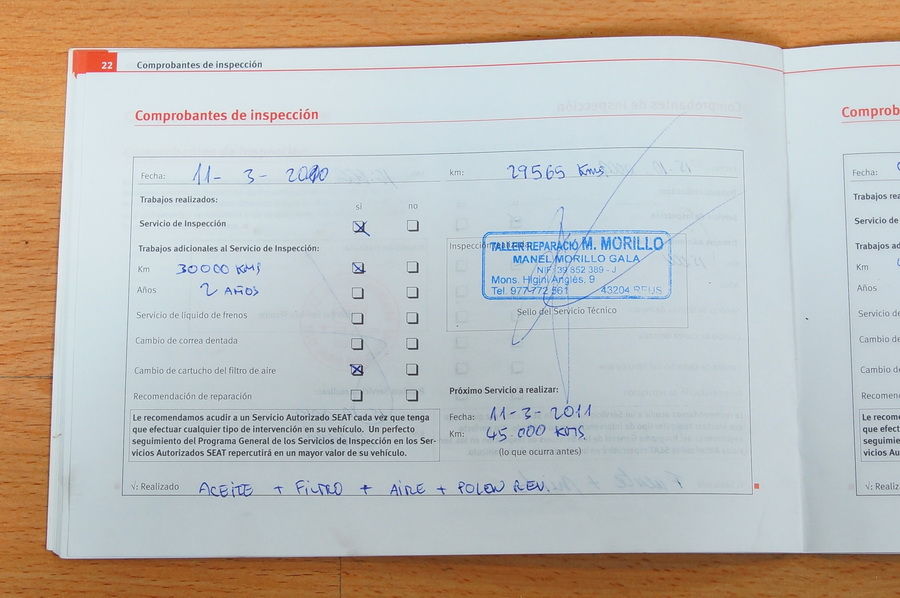 22 Comprobantes de inspección
Comprobantes de inspección
Fecha: 11-3-2010 km: 29565 Kms
Trabajos realizados:
si no
Servicio de Inspección
Trabajos adicionales al Servicio de Inspección:
Km 30000 KMS
Años 2 AÑOS
Servicio de líquido de frenos
Cambio de correa dentada
Cambio de cartucho del filtro de aire
Recomendación de reparación
Le recomendamos acudir a un Servicio Autorizado SEAT cada vez que tenga
que efectuar cualquier tipo de intervención en su vehículo. Un perfecto
seguimiento del Programa General de los Servicios de Inspección en los Ser-
vicios Autorizados SEAT repercutirá en un mayor valor de su vehículo.
TALLER REPARACIÓ M. MORILLO
MANEL MORILLO GALA
NIF: 39 852 389 - J
Mons. Higini Anglès, 9
Tel. 977 772 561 43204 REUS
Sello del Servicio Técnico
Próximo Servicio a realizar:
Fecha: 11-3-2011
Km: 45.000 KMS
(lo que ocurra antes)
√: Realizado ACEITE + FILTRO + AIRE + POLEN REV.
Comprob
Fecha:
Trabajos re
Servicio de
Trabajos ad
Km
Años
Servicio de
Cambio de
Cambio de
Recomen
Le recome
que efect
seguimie
vicios Au
√: Realiz